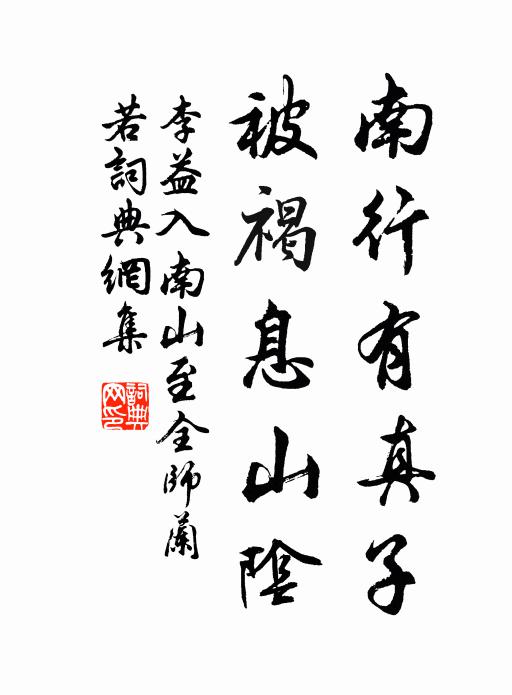 南行有真子
被褐息山陰
李益入南山至全師蘭
若詞典網集
詞典网印